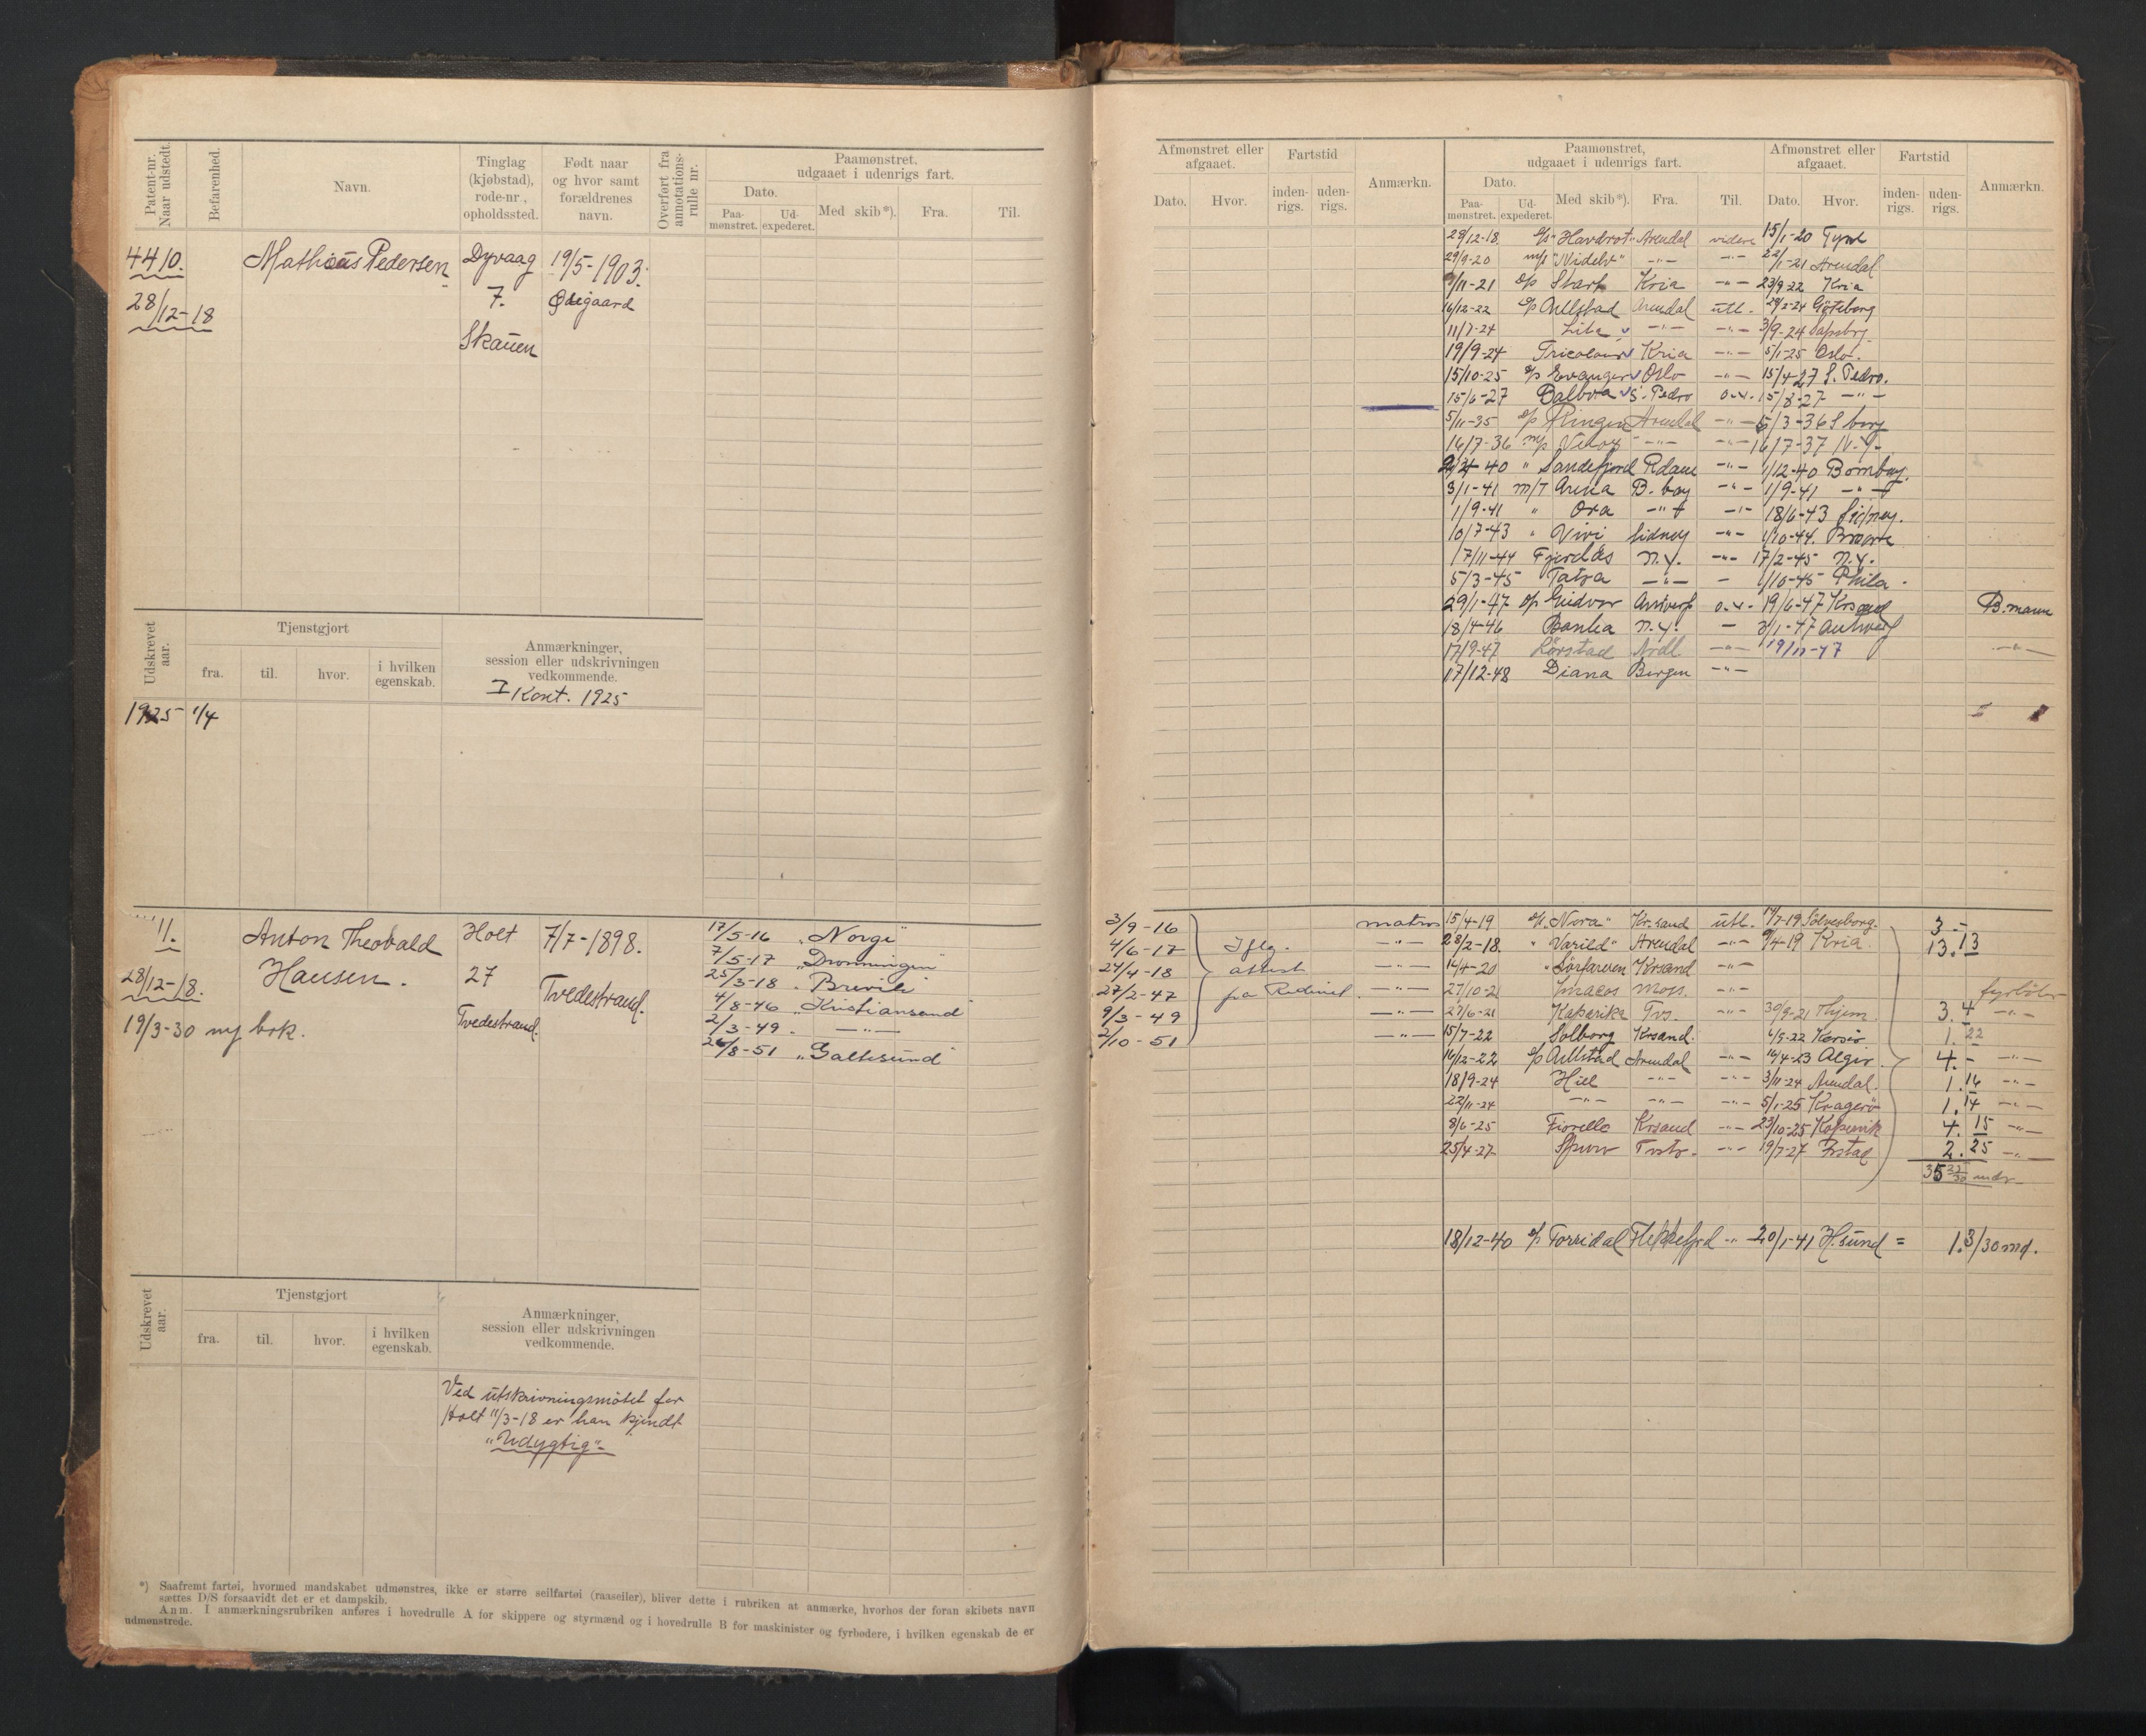 Patent-nr. Naar udstedt.
Befarenhed.
Navn.
Tinglag (kjøbstad), rode-nr., opholdssted.
Født naar og hvor samt forældrenes navn.
Overført fra annotations-rulle nr.
Paamønstret, udgaaet i udenrigs fart.
Dato.
Paa-mønstret.
Ud-expederet.
Med skib*).
Fra.
Til.
4410.
28/12-18
Mathias Pedersen
Dyvaag
7.
Skauen
19/5-1903.
Ødegaard
Udskrevet aar.
Tjenstgjort
fra.
til.
hvor.
i hvilken egenskab.
Anmærkninger, session eller udskrivningen vedkommende.
I Kont. 1925
1925 1/4
" 11.
28/12-18.
19/3-30 ny bok.
Anton Theobald
Hansen.
Holt
27
Tvedestrand.
7/7-1898.
Tvedestrand.
17/5-16 „Norge"
7/5-17 „Dronningen"
25/3-18 „Brevik"
4/8-46 „Kristiansand"
2/3-49. —"—
26/8-51 „Galtesund"
Udskrevet aar.
Tjenstgjort
fra.
til.
hvor.
i hvilken egenskab.
Anmærkninger, session eller udskrivningen vedkommende.
Ved utskrivningsmötet for
Holt 11/3-18 er han kjendt
„Udygtig"
*) Saafremt fartøi, hvormed mandskabet udmønstres, ikke er større seilfartøi (raaseiler), bliver dette i rubriken at anmærke, hvorhos der foran skibets navn
sættes D/S forsaavidt det er et dampskib.
Anm. I anmærkningsrubriken anføres i hovedrulle A for skippere og styrmænd og i hovedrulle B for maskinister og fyrbødere, i hvilken egenskab de er
udmønstrede.
Afmønstret eller afgaaet.
Dato.
Hvor.
Fartstid
inden-rigs.
uden-rigs.
Anmærkn.
Paamønstret, udgaaet i udenrigs fart.
Dato.
Paa-mønstret.
Ud-expederet.
Med skib*).
Fra.
Til.
Afmønstret eller afgaaet.
Dato.
Hvor.
Fartstid
inden-rigs.
uden-rigs.
Anmærkn.
28/12-18 Arendal videre 15/1-20 Tyne
29/9-20 "Nidelv" —"— —"— 22/1-21 Arendal
11-21 Kria —"— 23/9-22 Kria
16/12-22 Aullstad Arendal utl. 29/2-24 Göteborg
11/7-24 —"— —"— 3/9-24
19/9-24 Tricolour Kria —"— 5/1-25 Oslo.
15/10-25 Evanger Oslo —"— 15/4-27 S. Pedro.
15/6-27 Balboa S. Pedro 15/8-27 —"—
5/11-35 Ringen Arendal —"— 5/3-36 S borg
16/7-36 —"— —"— 16/7-37 N.Y.
40 " Sandefjord Rdam —"— 1/12-40 Bombay.
3/1-41 M/T Arena B. bay —"— 1/9-41 —"—
1/9-41 " Ora —"— —"— 18/6-43 Sidney.
10/7-43 " Vivi Sidney —"— 1/10-44.
17/11-44 Fjordås N.Y. —"— 17/2-45 N.Y.
5/3-45 Tatra —"— — 1/10-45 Phila.
29/1-47 Gudvor Antwerp 19/6-47 Krsand B.mann
18/4-46 Banha N.Y. — 3/1-47 Antwerp
17/9-47 Lörstad Ardl —"— 19/11-47 —"—
17/12-48 Diana Bergen —"—
3/9-16
4/6-17
24/4-18
27/2-47
9/3-49
2/10-51
Iflg.
attest
fra Rederiet.
matros
—"—
—"—
—"—
—"—
—"—
15/4-19 „Nora" Kr.sand utl. 14/7-19 Sölvesborg. 3.-
28/2-18. " Varild" Arendal —"— 9/4-19 Kria. 13.13
14/4-20 „Sörfareren Krsand —"—
27/10-2 Moss. —"— fyrböter
27/6-21 Kaparika Tvs. —"— 30/9-21 3.4 —"—
15/7-22 Solborg Krsand. 6/9-22 Korsör 1.22
16/12-22 Aullstad Arendal —"— 16/4-23 Algier 4.- —"—
18/9-24 Hiel —"— —"— 3/11-24 Arendal. 1.16 —"—
22/11-24 —"— —"— —"— 5/1-25 Kragerö 1.14 —"—
8/6-25 Fiorello Krsand —"— 23/10-25 Kopervik 4.15 —"—
25/4-27 Spurv —"— 19/7-27 2.25 —"—
35 mdr
18/12-40 Torridal Flekkefjord —"— 20/1-41 H.sund = 1.3/30 md.